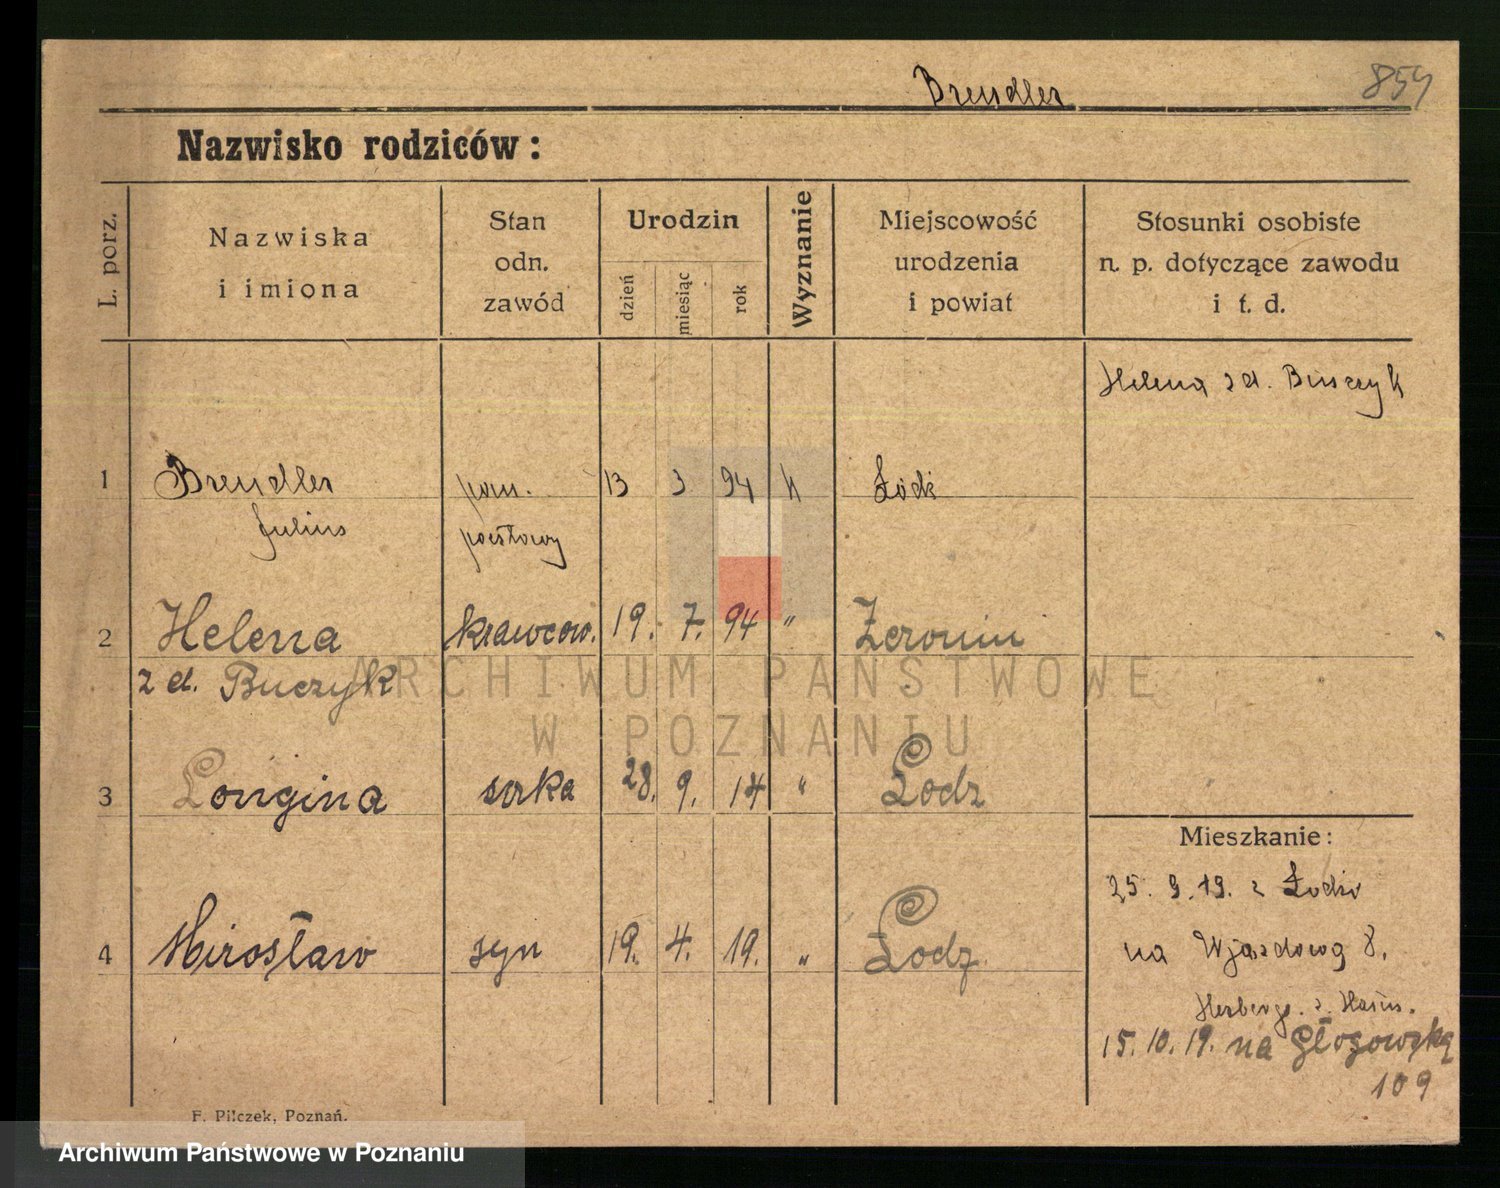 Brendler 854
Nazwisko rodziców:
L. porz.
Nazwiska i imiona
Stan odn. zawód
Urodzin
dzień miesiąc rok
Wyznanie
Miejscowość urodzenia i powiat
Stosunki osobiste n. p. dotyczące zawodu i t. d.
Helena z d.
1 Brendler pom. 13 3 94 Łódź
Julius pocztowy
2 Helena krawcow. 19. 7. 94 " Zeronin
z d. Buczyk
ARCHIWUM PAŃSTWOWE
W POZNANIU
3 Longina 28. 9. 14 " Łodz
Mieszkanie:
25. 9. 19. z Łodzi
4 Mirosław syn 19. 4. 19. " Łodz
na Wjazdową 8.
Herberge z.
15. 10. 19. na Głogowską
109
F. Pilczek, Poznań.
Archiwum Państwowe w Poznaniu